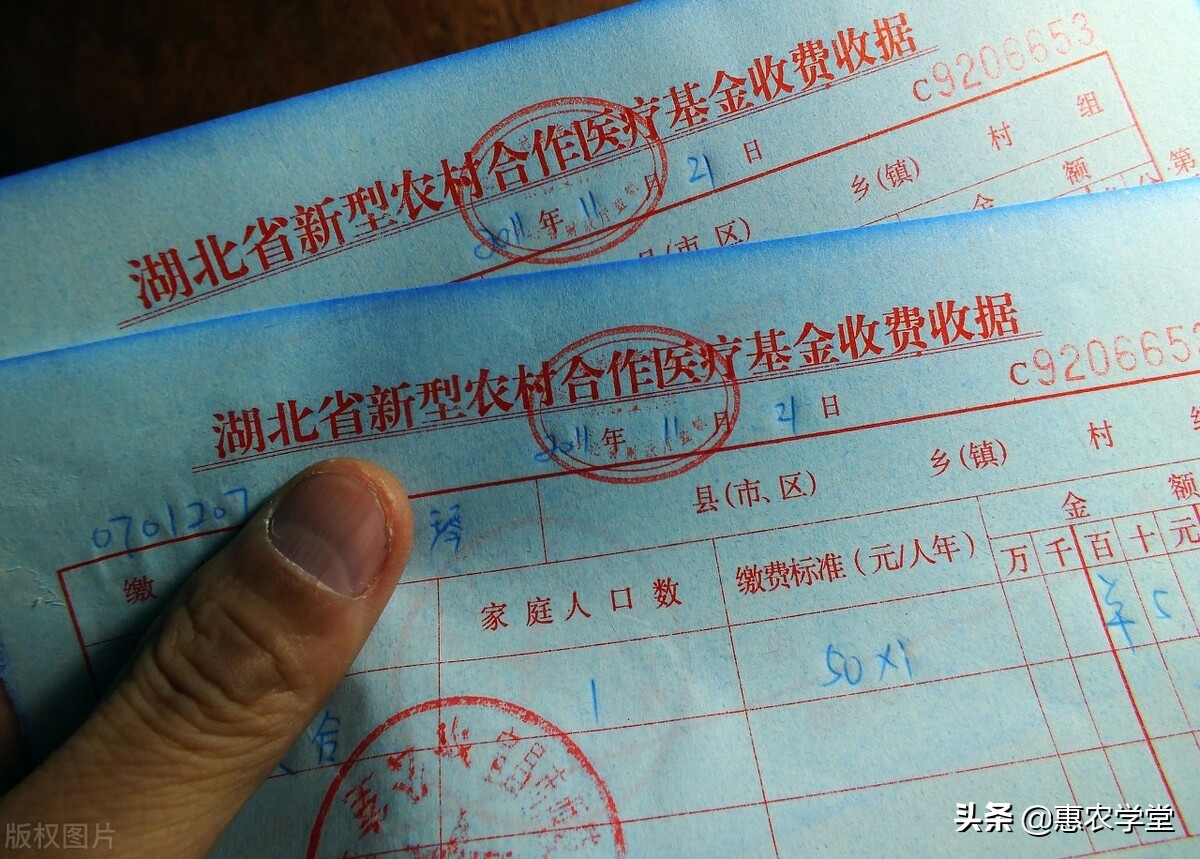 湖北省新型农村合作医疗基金收费收据
c9206653
2011年11月21日
县(市、区) 乡(镇) 村 组
金 额
第
湖北省新型农村合作医疗基金收费收据
c920665
2011年11月21日
0701207
琴
县(市、区) 乡(镇) 村
缴
家庭人口数
缴费标准(元/人年)
金 额
万 千 百 十 元
1
50×1
5
合
版权图片
头条 @惠农学堂